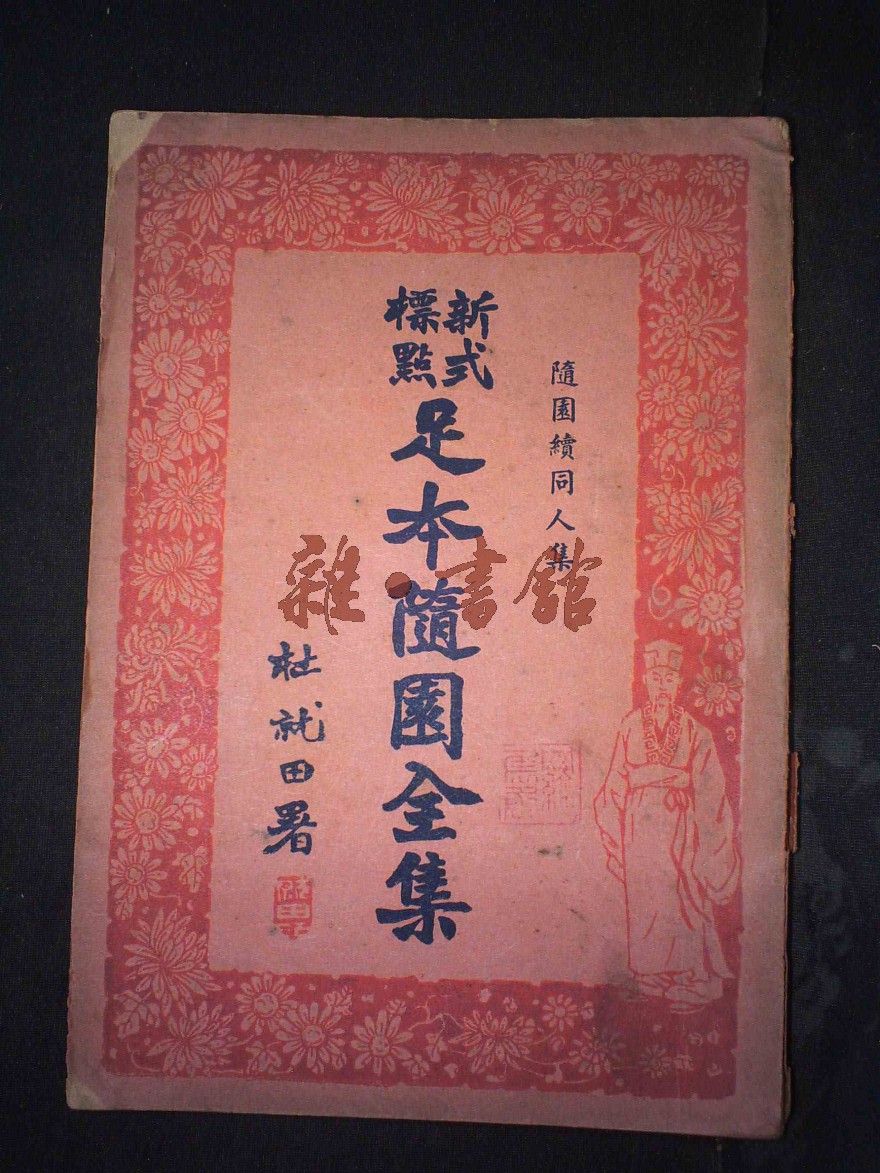 隨園續同人集
新式
標點
足本隨園全集
杜就田署
雜·書館